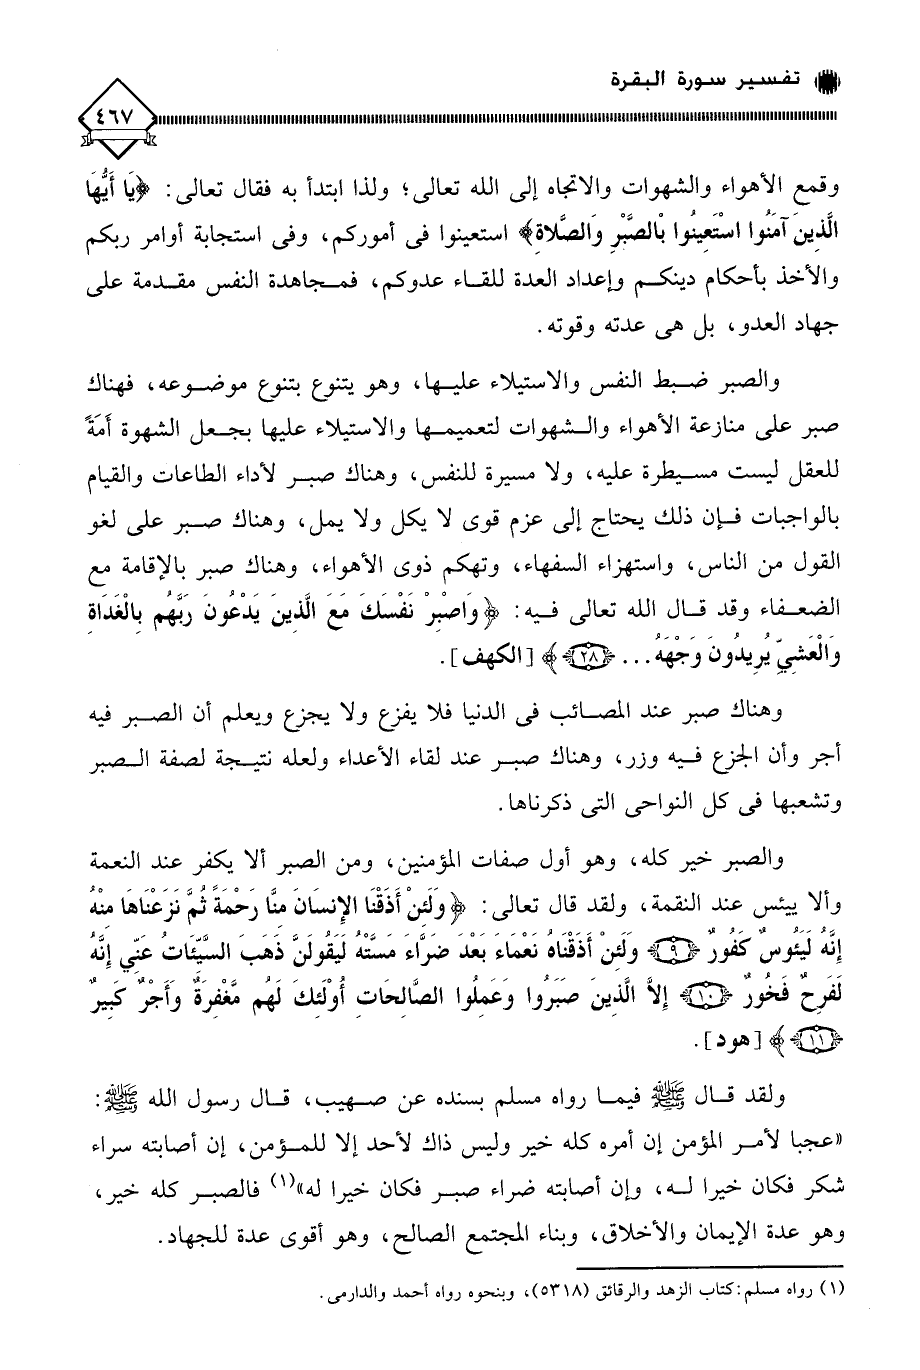 تفسير سورة البقرة
٤٦٧
وقمع الأهواء والشهوات والاتجاه إلى الله تعالى؛ ولذا ابتدأ به فقال تعالى: ﴿يَا أَيُّهَا
الَّذِينَ آمَنُوا اسْتَعِينُوا بِالصَّبْرِ وَالصَّلاةِ﴾ استعينوا فى أموركم، وفى استجابة أوامر ربكم
والأخذ بأحكام دينكم وإعداد العدة للقاء عدوكم، فمجاهدة النفس مقدمة على
جهاد العدو، بل هى عدته وقوته.
والصبر ضبط النفس والاستيلاء عليها، وهو يتنوع بتنوع موضوعه، فهناك
صبر على منازعة الأهواء والشهوات لتعميمها والاستيلاء عليها بجعل الشهوة أمَةً
للعقل ليست مسيطرة عليه، ولا مسيرة للنفس، وهناك صبر لأداء الطاعات والقيام
بالواجبات فإن ذلك يحتاج إلى عزم قوى لا يكل ولا يمل، وهناك صبر على لغو
القول من الناس، واستهزاء السفهاء، وتهكم ذوى الأهواء، وهناك صبر بالإقامة مع
الضعفاء وقد قال الله تعالى فيه: ﴿وَاصْبِرْ نَفْسَكَ مَعَ الَّذِينَ يَدْعُونَ رَبَّهُم بِالْغَدَاةِ
وَالْعَشِيِّ يُرِيدُونَ وَجْهَهُ... ﴿٢٨﴾﴾ [الكهف].
وهناك صبر عند المصائب فى الدنيا فلا يفزع ولا يجزع ويعلم أن الصبر فيه
أجر وأن الجزع فيه وزر، وهناك صبر عند لقاء الأعداء ولعله نتيجة لصفة الصبر
وتشعبها فى كل النواحى التى ذكرناها.
والصبر خير كله، وهو أول صفات المؤمنين، ومن الصبر ألا يكفر عند النعمة
وألا ييئس عند النقمة، ولقد قال تعالى: ﴿وَلَئِنْ أَذَقْنَا الإِنسَانَ مِنَّا رَحْمَةً ثُمَّ نَزَعْنَاهَا مِنْهُ
إِنَّهُ لَيَئُوسٌ كَفُورٌ ﴿٩﴾ وَلَئِنْ أَذَقْنَاهُ نَعْمَاءَ بَعْدَ ضَرَّاءَ مَسَّتْهُ لَيَقُولَنَّ ذَهَبَ السَّيِّئَاتُ عَنِّي إِنَّهُ
لَفَرِحٌ فَخُورٌ ﴿١٠﴾ إِلاَّ الَّذِينَ صَبَرُوا وَعَمِلُوا الصَّالِحَاتِ أُوْلَئِكَ لَهُم مَّغْفِرَةٌ وَأَجْرٌ كَبِيرٌ
﴿١١﴾﴾ [هود].
ولقد قال ﷺ فيما رواه مسلم بسنده عن صهيب، قال رسول الله ﷺ:
«عجبا لأمر المؤمن إن أمره كله خير وليس ذاك لأحد إلا للمؤمن، إن أصابته سراء
شكر فكان خيرا له، وإن أصابته ضراء صبر فكان خيرا له»(١) فالصبر كله خير،
وهو عدة الإيمان والأخلاق، وبناء المجتمع الصالح، وهو أقوى عدة للجهاد.
(١) رواه مسلم: كتاب الزهد والرقائق (٥٣١٨)، وبنحوه رواه أحمد والدارمى.